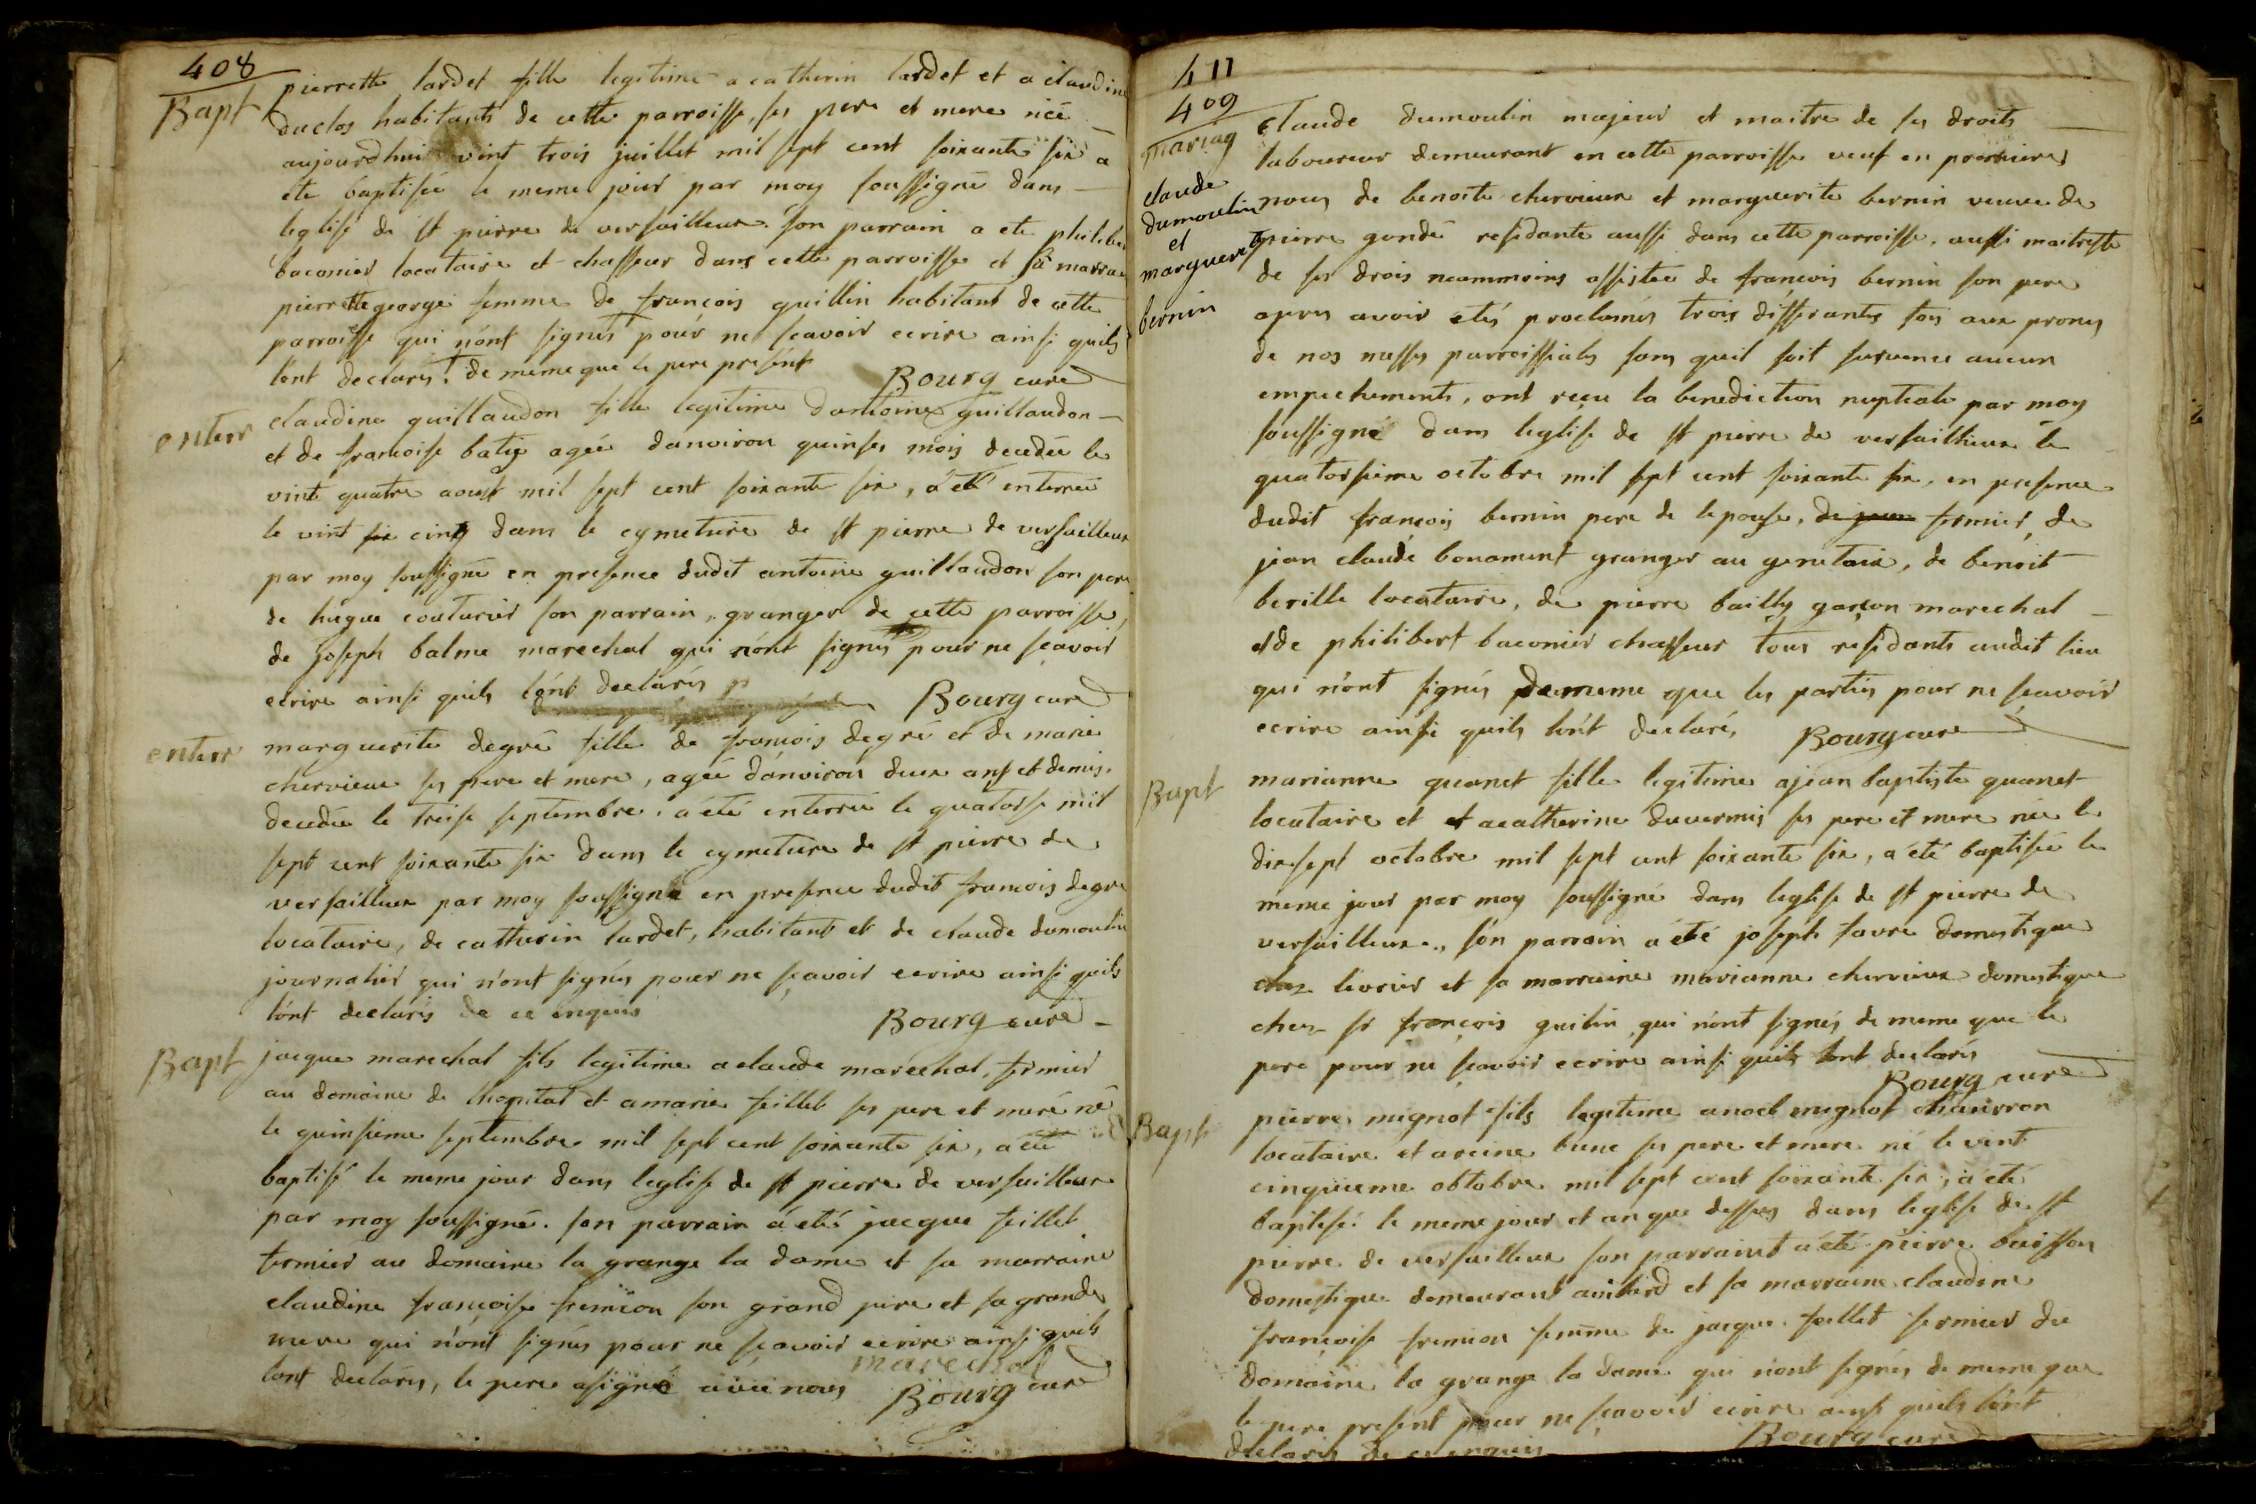 408
Bapt
pierrette lardet fille legitime a catherin lardet et a claudine
duclos habitants de cette parroisse, ses pere et mere née
aujourdhui vint trois juillet mil sept cent soixante six a
ete baptisée le meme jour par moy soussigné dans
leglise de st pierre de versailleux. son parrain a ete philiber
baconier locataire et chasseur dans cette parroisse et sa marrai
pierrette george femme de françois guillin habitant de cette
parroisse qui n'ont signés pour ne sçavoir ecrire ainsi quils
lont declarés. de meme que le pere présent Bourg curé
enterr
claudine guillaudon fille legitime dantoine guillaudon
et de francoise batie agée danviron quinse mois decedée le
vint quatre aoust mil sept cent soixante six, a été enterrée
le vint six cinq dans le cymetiere de st pierre de versailleux
par moy soussigné en presence dudit antoine guillaudon son pere
de hugue couturier son parrain, granger de cette parroisse,
de joseph balme marechal qui n'ont signés pour ne sçavoir
ecrire ainsi quils l'ont declarés Bourg curé
enterr
marguerite degré fille de francois degré et de marie
chervieux ses pere et mere, agée d'anviron deux ans et demis,
decedée le treise septembre, a été enterrée le quatorse mil
sept cent soixante six dans le cymetiere de st pierre de
versailleux par moy soussigné en presence dudit francois degre
locataire, de catherin lardet, habitant et de claude dumoulin
journalier qui n'ont signés pour ne sçavoir ecrire ainsi quils
l'ont declarés de ce enquis Bourg curé
Bapt
jacque marechal fils legitime a claude maréchal, fermier
au domaine de lhopital et a marie feillet ses pere et mere né
le quinsieme septembre mil sept cent soixante six, a été
baptisé le meme jour dans leglise de st pierre de versailleux
par moy soussigné. son parrain a été jacque feillet
fermier au domaine la grange la dame et sa marraine
claudine françoise fremion son grand pere et sa grande
mere qui n'ont signés pour ne sçavoir ecrire ainsi quils
lont declarés, le pere asigné avec nous marechal
Bourg curé
411
409
mariag
claude
dumoulin
et
marguerite
bernin
Claude dumoulin majeur et maitre de ses droits
laboureur demeurant en cette parroisse veuf en premieres
noces de benoite chervieux et marguerite bernin veuve de
pierre gondé residante aussi dans cette parroisse, aussi maitresse
de ses drois neanmoins assistée de francois bernin son pere
apres avoir etés proclamés trois differantes fois aux prones
de nos messes parroissiales sans quil soit survenu aucun
empechements, ont reçu la benediction nuptiale par moy
soussigné dans leglise de st pierre de versaillieux le
quatorsieme octobre mil sept cent soixante six, en presence
dudit françois bernin pere de lepouse, de jean fermier, de
jean claude bonament granger au genetaix, de benoit
berille locataire, de pierre bailly garçon marechal
et de philibert baconier chasseur tous residants audit lieu
qui n'ont signés de meme que les parties pour ne sçavoir
ecrire ainsi quils lont declaré, Bourg curé
Bapt
marianne quanet fille legitime a jean baptiste quanet
locataire et et acatherine duvernis ses pere et mere née le
dixsept octobre mil sept cent soixante six, a été baptisée le
meme jour par moy soussigné dans leglise de st pierre de
versailleux., son parrain a été joseph favre domestique
chez livrier et sa marraine marianne chervieux domestique
chez sr françois guilin, qui n'ont signés de meme que le
pere pour ne sçavoir ecrire ainsi quils lont declarés
Bourg curé
Bapt
pierre mignot fils legitime anoel mignot
locataire et areine bune ses pere et mere né le vint
cinquieme obtobre mil sept cent soixante six, a été
baptisé le meme jour et an que dessus dans leglise de st
pierre de versailleux son parraint a été pierre buisson
domestique demeurant and sa marraine claudine
françoise fremion femme de jacque feillet fermier du
domaine la grange la dame qui n'ont signés de meme que
le pere present pour ne sçavoir ecrire ainsi quils l'ont
declarés de ce enquis Bourg curé